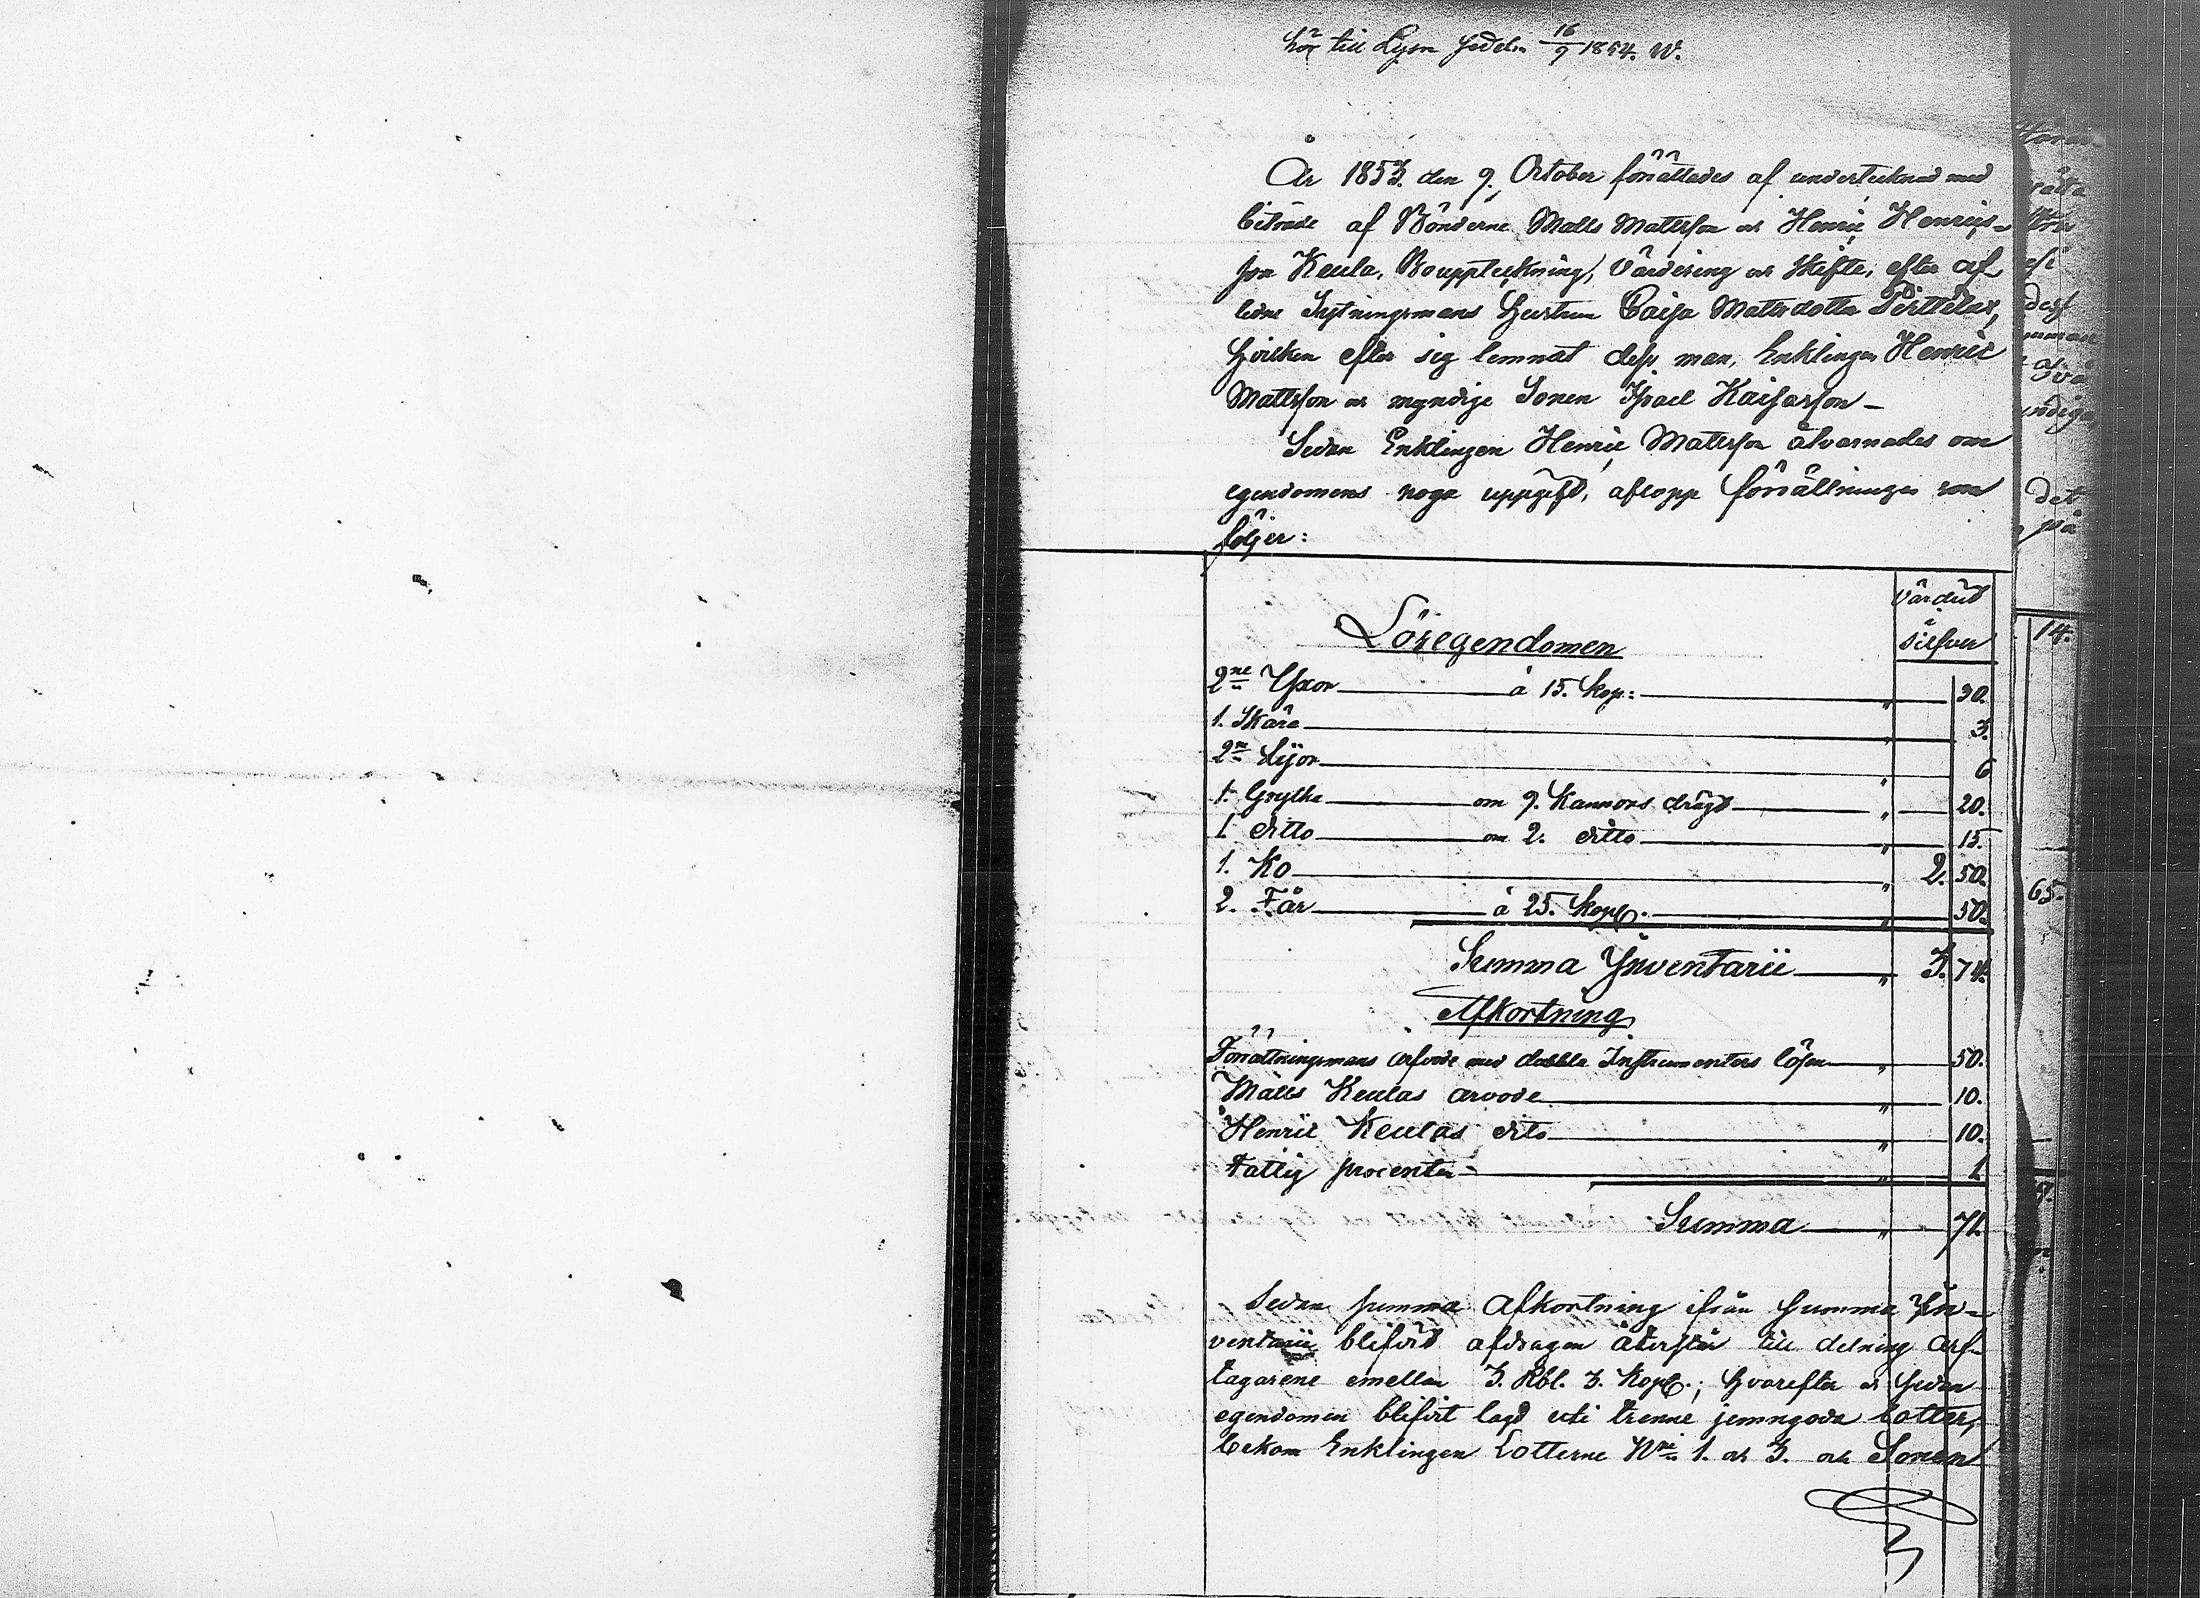 hör till Lysn 16/9 1854. W.
År 1853. den 9. October förrättades af undertecknad med
biträde af Bönderne Matts Mattsson och Henric Henrics-
son Keula, Bouppteckning, Värdering och Skifte, efter af
ledne Sytningsmans Hustrun Caisa Mattsdotter Perttilax,
Hvilken efter sig lemnat dess man, Enklingen Henric
Mattsson och myndige Sonen Israel Kaisasson –
Sedan Enklingen Henric Mattsson åtvarnades om
egendomens noga uppgift, aflopp förrättningen som
följer:
Värdiet
Löregendomen
i silfver
2ne Yxor à 15. kop: " 30.
1. Skära " 3.
2ne Lijor " 6
1. Gryta om 9. Kannors drägt " 20.
1 ditto om 2. ditto " 15.
1. Ko " 2. 50.
2. Får à 25. Kop. " 50.
Summa Inventarii " 3. 74.
Afkortning
Förrättningsmans arfvode med dubbla Instrumenters lösen " 50.
Matts Keulas arvode " 10.
Henric Keulas dito " 10.
Fattig procenten " 1
Summa " 71.
Sedan summa Afkortning ifrån summa In-
ventarii blifvit afdragen återstår till delning arf-
tagarene emellan 3. Rbl. 3. Kop.; hvarefter och sedan
egendomen blifvit lagd uti trenne jemngoda lotter,
bekom Enklingen Lotterne Nri 1. och 3. och Sonen
det
på
14.
65.